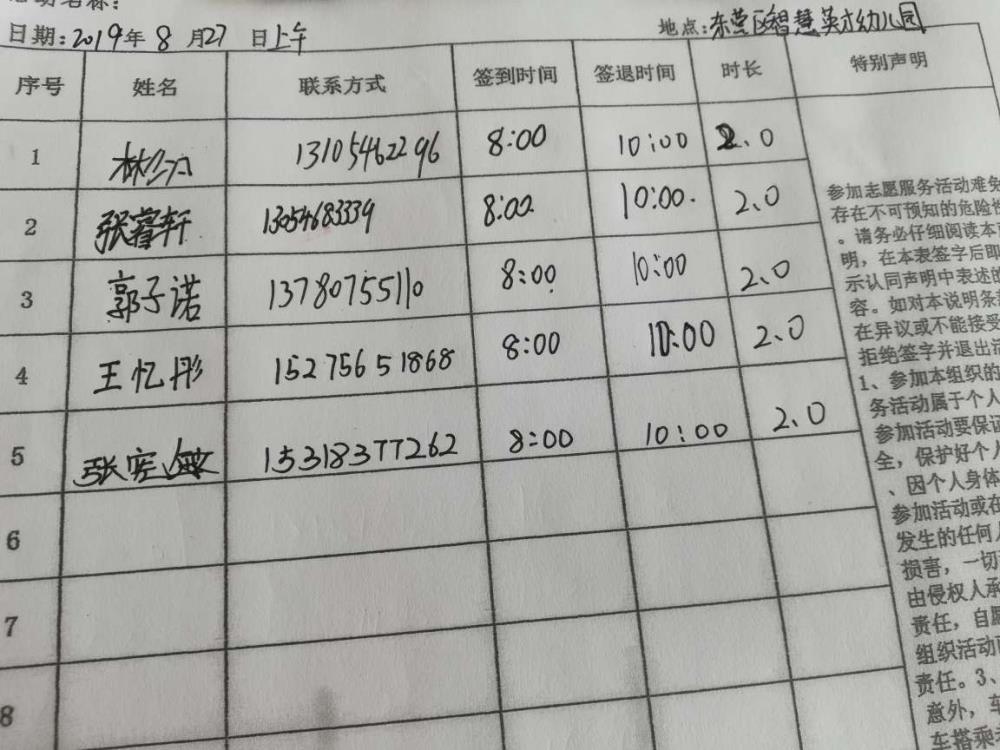 日期:2019年8月27日上午 地点:东营区智慧英才幼儿园
序号 姓名 联系方式 签到时间 签退时间 时长 特别声明
1 13105462296 8:00 10:00 2.0
2 张睿轩 13054683339 8:00 10:00. 2.0
3 郭子诺 13780755110 8:00 10:00 2.0
4 王忆彤 15275651868 8:00 10:00 2.0
5 张宪 15318377262 8:00 10:00 2.0
6
7
8
参加志愿服务活动难免
存在不可预知的危险性
。请务必仔细阅读本
明，在本表签字后即
示认同声明中表述的
容。如对本说明条
在异议或不能接受
拒绝签字并退出活
1、参加本组织的
务活动属于个人
参加活动要保证
全，保护好个人
、因个人身体
参加活动或在
发生的任何人
损害，一切
由侵权人承
责任，自愿
组织活动
责任。3、
意外，车
车搭乘